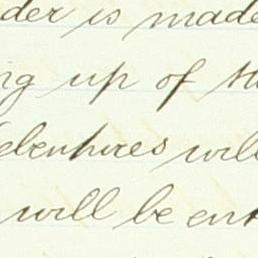 der is made
ng up of the
debentures will
will be ent